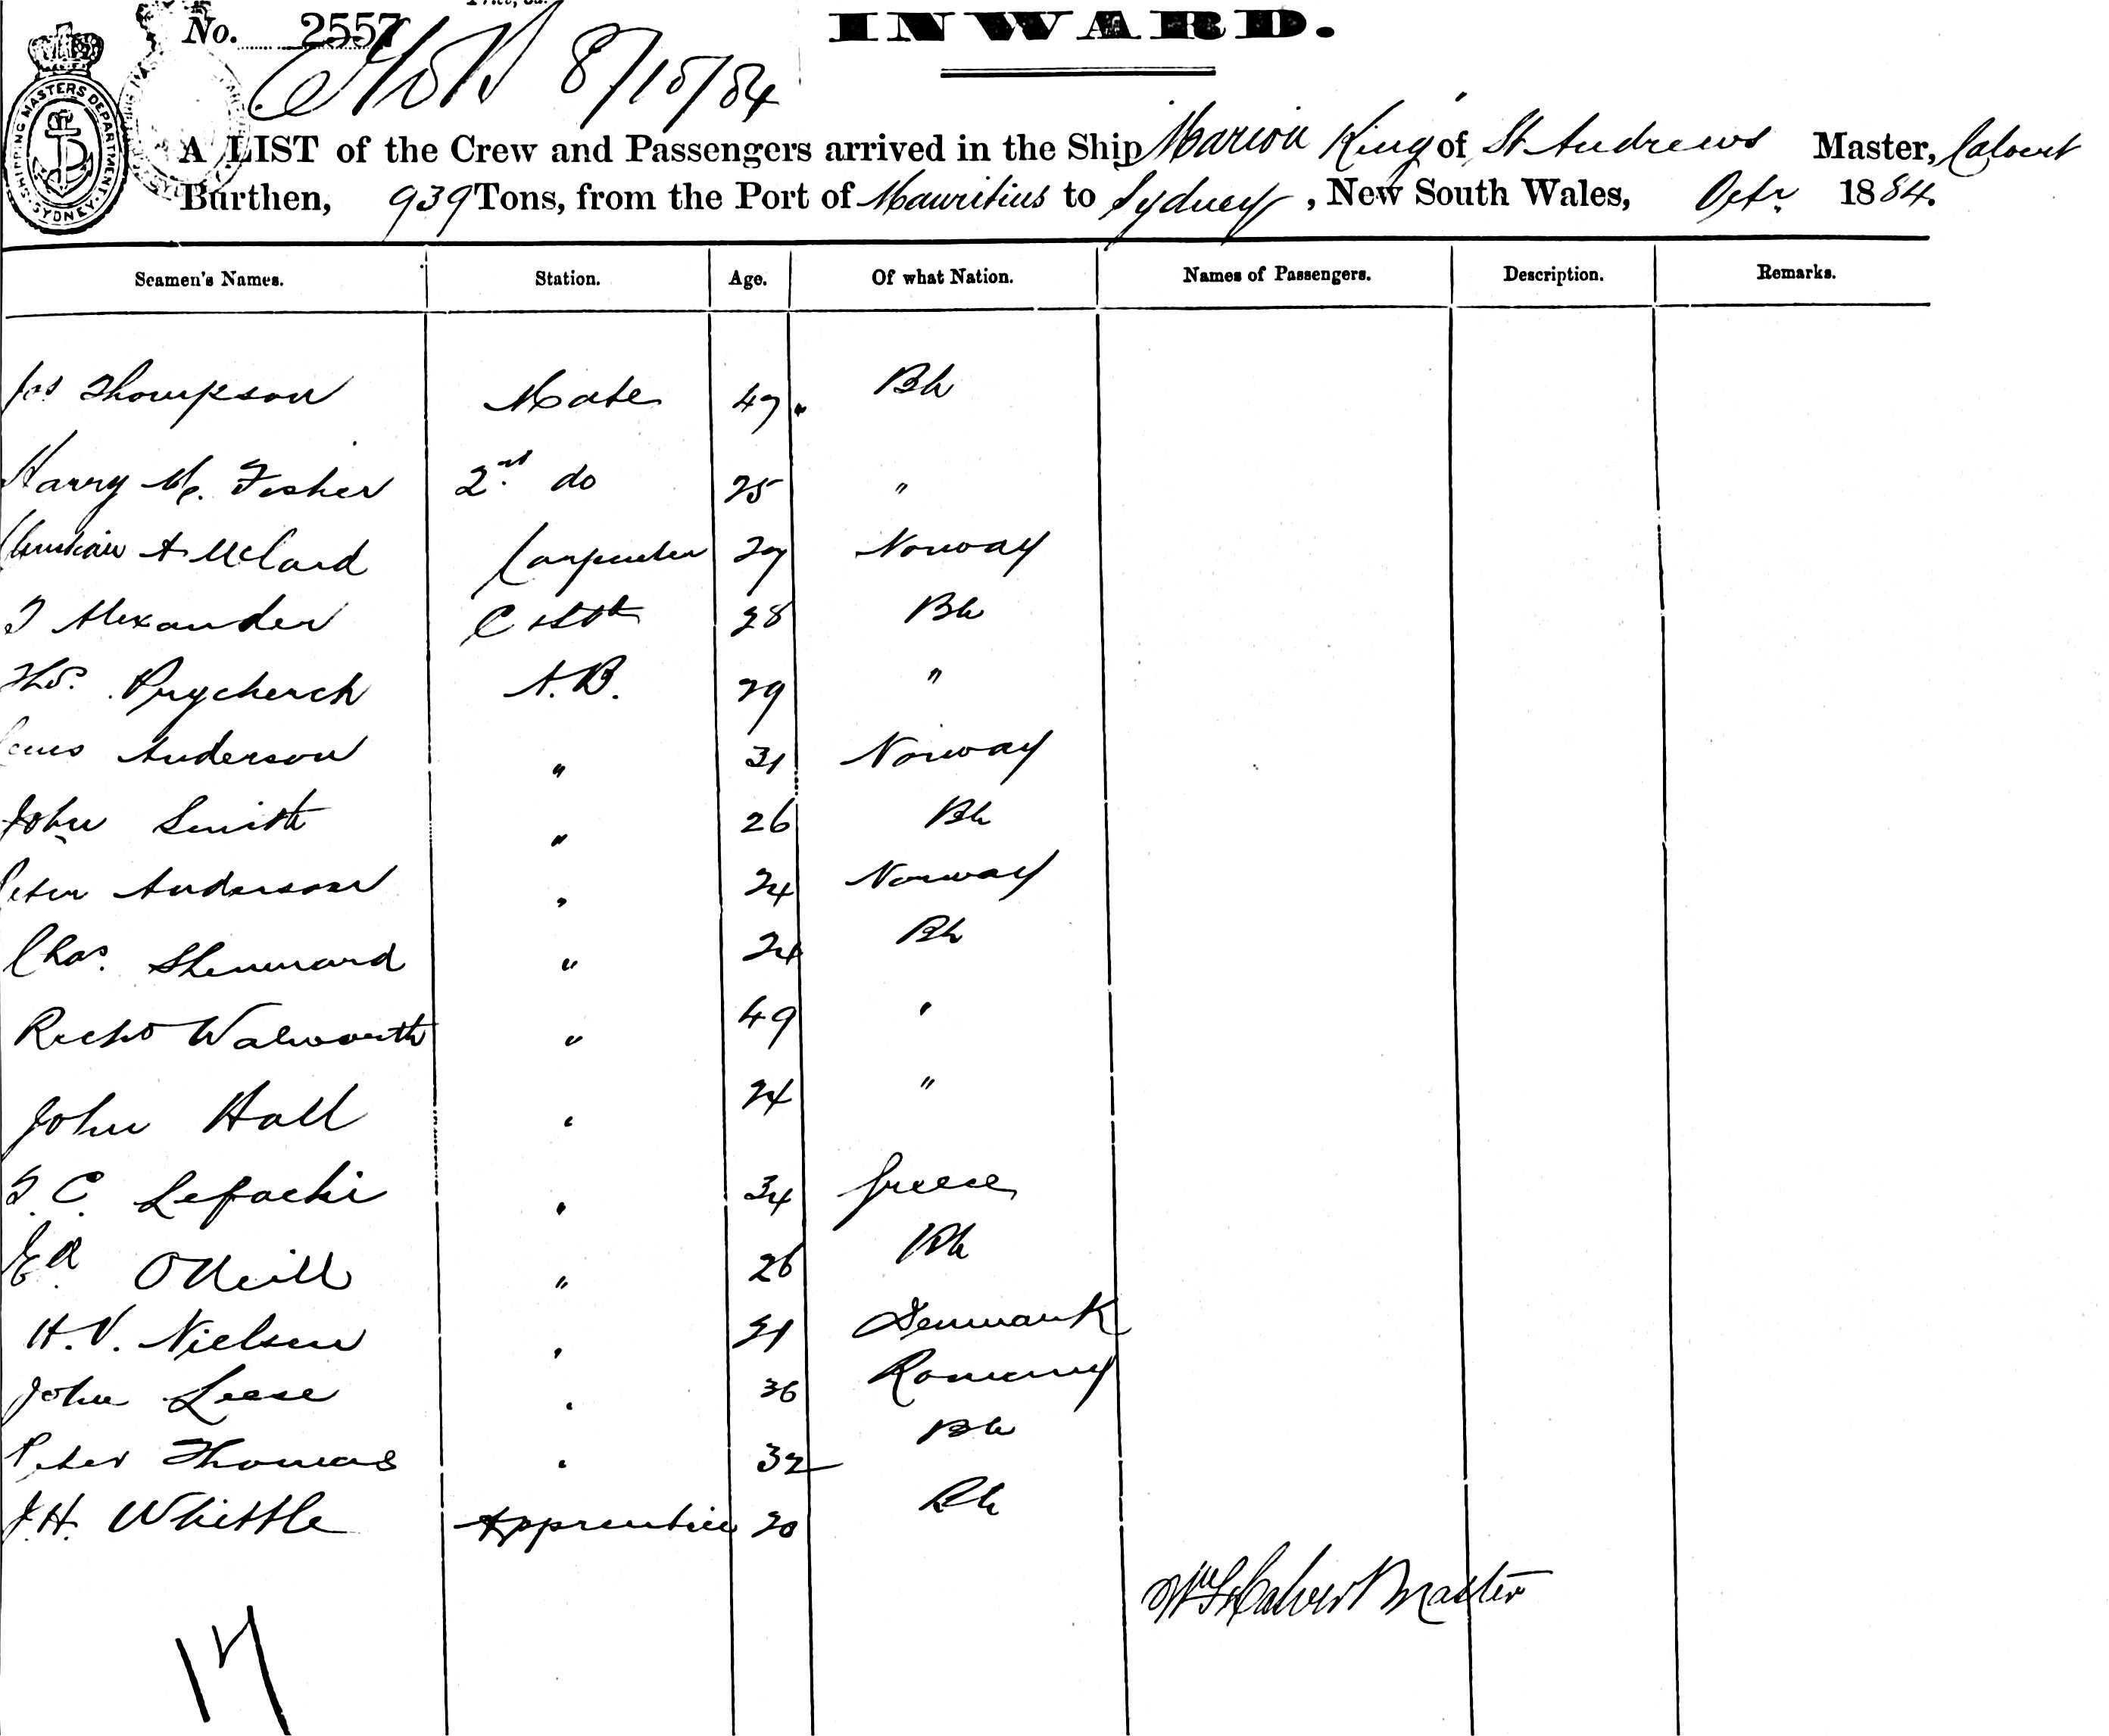 No. 2557
INWARD.
8/10/84
SHIPPING MASTERS DEPARTMENT SYDNEY
A LIST of the Crew and Passengers arrived in the Ship Marion King of St Andrews Master, Calvert
Burthen, 939 Tons, from the Port of Mauritius to Sydney, New South Wales, Octr 1884.
Seamen's Names. Station. Age. Of what Nation. Names of Passengers. Description. Remarks.
Jas Thompson Mate 47 Bh
Harry M. Fisher 2nd do 25 "
Christian A Carpenter 27 Norway
Alexander 28 Bh
Thos. Prycherch A.B. 29 "
Anderson " 31 Norway
John Smith " 26 Bh
Peter Anderson " 24 Norway
Chas. Shennard " 24 Bh
Richd Walworth " 49 "
John Hall " 24 "
C. Lefachi " 34 Greece
Ed. ONeill " 26 Bh
H.V. Nielsen " 21 Denmark
John Leese " 36
Peter Thomas " 32 Bh
J.H. Whittle Apprentice 20 Bh
Calvert Master
17